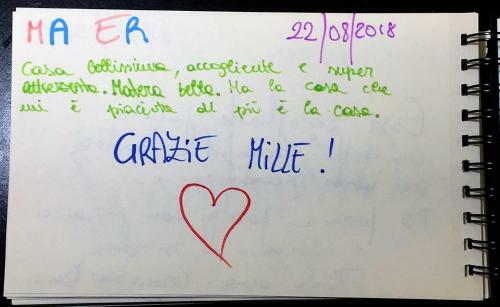 MA ER 22/08/2018
Casa bellissima, accogliente e super
attrezzata. Matera bella. Ma la cosa che
mi è piaciuta di più è la casa.
GRAZIE MILLE!